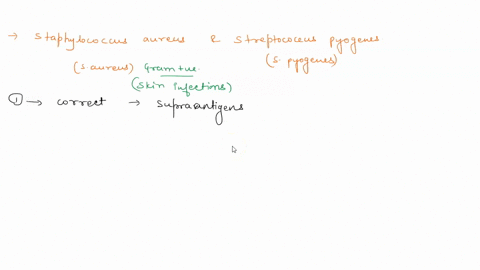 → Staphylococcus aureus & Streptococcus pyogenes
(S. aureus) Gram +ve (S. pyogenes)
(Skin infections)
① → correct → supraantigens